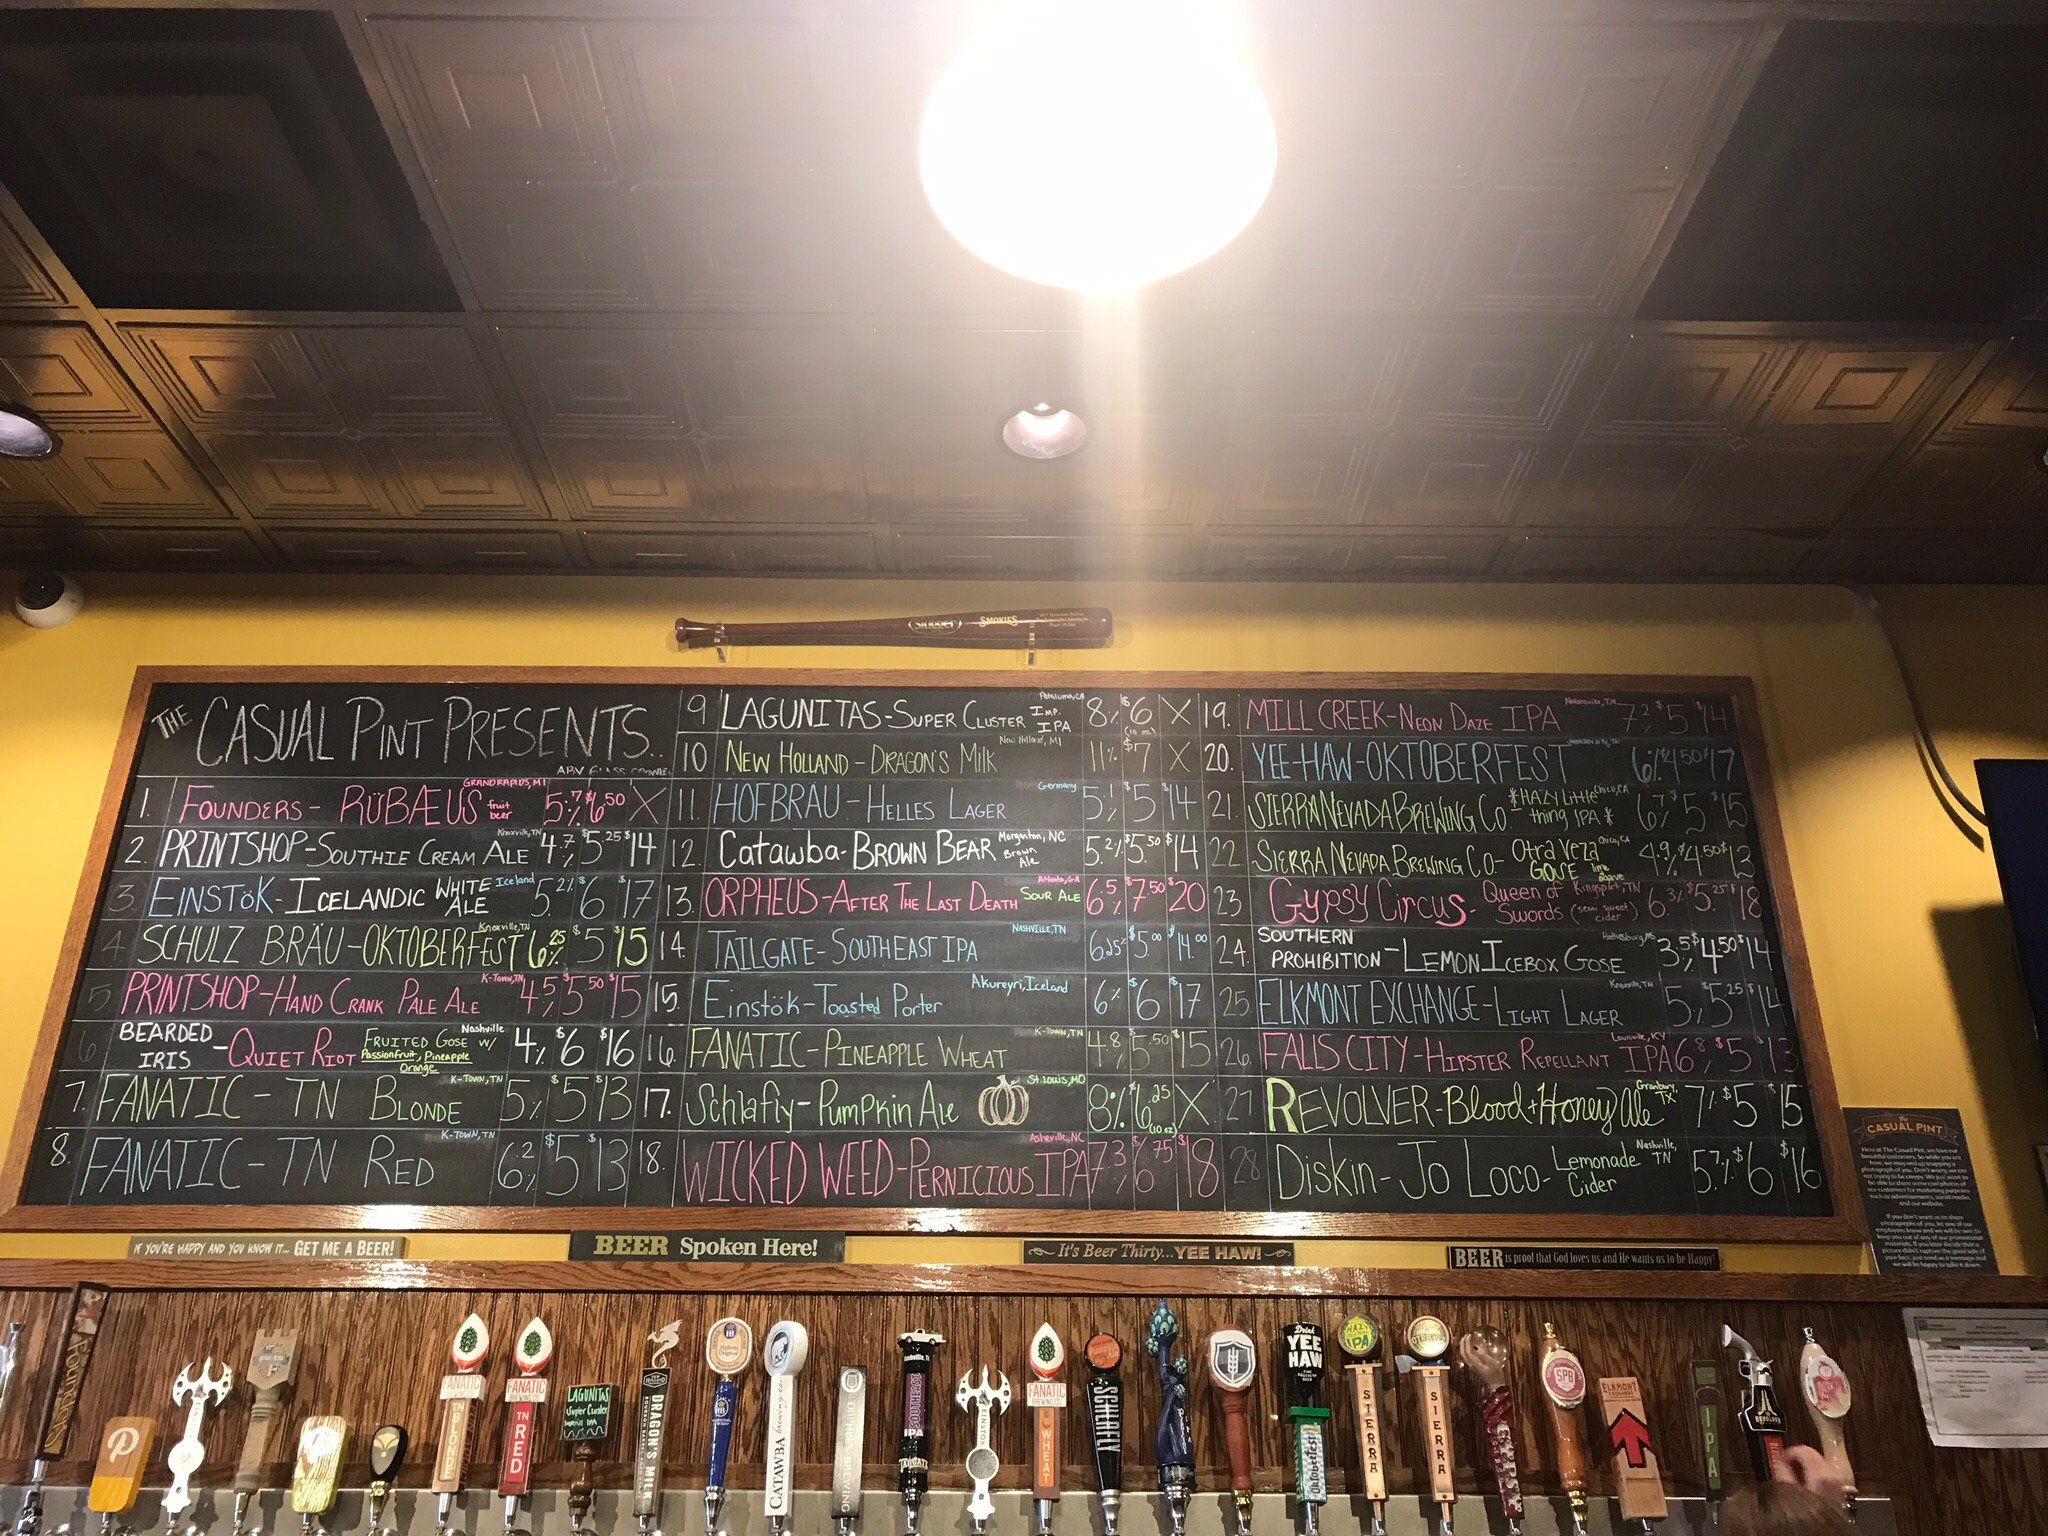 SMOKIES
THE CASUAL PINT PRESENTS...
ABV GLASS GROWLER
1. FOUNDERS - RÜBÆUS fruit beer GRAND RAPIDS, MI 5.7% $6.50 X
2. PRINTSHOP - SOUTHIE CREAM ALE Knoxville, TN 4.7% $5.25 $14
3. EINSTÖK - ICELANDIC WHITE ALE Iceland 5.2% $6 $17
4. SCHULZ BRÄU - OKTOBERFEST Knoxville, TN 6.25% $5 $15
5. PRINTSHOP - HAND CRANK PALE ALE K-TOWN, TN 4.5% $5.50 $15
6. BEARDED IRIS - QUIET RIOT FRUITED GOSE W/ Passionfruit, Pineapple Orange Nashville 4% $6 $16
7. FANATIC - TN BLONDE K-TOWN, TN 5% $5 $13
8. FANATIC - TN RED K-TOWN, TN 6.2% $5 $13
9 LAGUNITAS - SUPER CLUSTER IMP. IPA Petaluma, CA 8% $6 (10 oz.) X
10 NEW HOLLAND - DRAGON'S MILK New Holland, MI 11% $7 X
11. HOFBRAU - HELLES LAGER Germany 5.1% $5 $14
12. Catawba - BROWN BEAR Morganton, NC Brown Ale 5.2% $5.50 $14
13. ORPHEUS - AFTER THE LAST DEATH SOUR ALE Atlanta, GA 6.5% $7.50 $20
14. TAILGATE - SOUTHEAST IPA NASHVILLE, TN $5.00 $14.00
15. Einstök - Toasted Porter Akureyri, Iceland 6% $6 $17
16. FANATIC - PINEAPPLE WHEAT K-TOWN, TN 4.8% $5.50 $15
17. Schlafly - Pumpkin Ale St. Louis, MO 8% $6.25 (10 oz) X
18. WICKED WEED - PERNICIOUS IPA Asheville, NC 7.3% $6.75 $18
19. MILL CREEK - NEON DAZE IPA Nolensville, TN 7.2% $5 $14
20. YEE-HAW - OKTOBERFEST 6% $4.50 $17
21. SIERRA NEVADA BREWING CO - *HAZY Little thing IPA* Chico, CA 6.7% $5 $15
22 SIERRA NEVADA BREWING CO - Otra Veza GOSE lime agave Chico, CA 4.9% $4.50 $13
23 Gypsy Circus - Queen of Swords (semi sweet) cider Kingsport, TN 6.3% $5.25 $18
24. SOUTHERN PROHIBITION - LEMON ICEBOX GOSE Hattiesburg, MS 3.5% $4.50 $14
25. ELKMONT EXCHANGE - LIGHT LAGER Knoxville, TN 5% $5.25 $14
26. FALLS CITY - HIPSTER REPELLANT IPA Louisville, KY 6.8% $5 $13
27 REVOLVER - Blood + Honey Ale Granbury, TX 7% $5 $15
28. DISKIN - JO LOCO - Lemonade Cider Nashville, TN 5.7% $6 $16
IF YOU'RE HAPPY AND YOU KNOW IT... GET ME A BEER!
BEER Spoken Here!
It's Beer Thirty... YEE HAW!
BEER is proof that God loves us and He wants us to be Happy!
The
CASUAL PINT
FOUNDERS
EINSTÖK
FANATIC
TN BLONDE
FANATIC
BREWING CO.
TN RED
LAGUNITAS
Super Cluster
Imperial IPA
DRAGON'S MILK
CATAWBA brewing co.
ORPHEUS BREWING
SOUTHEAST IPA
TAILGATE
EINSTÖK
FANATIC
BREWING CO.
WHEAT
Pumpkin Ale
SCHLAFLY
Drink
YEE
HAW
Oktoberfest
HAZY
IPA
SIERRA
SIERRA
GYPSY
SPB
ELKMONT
EXCHANGE
IPA
REVOLVER